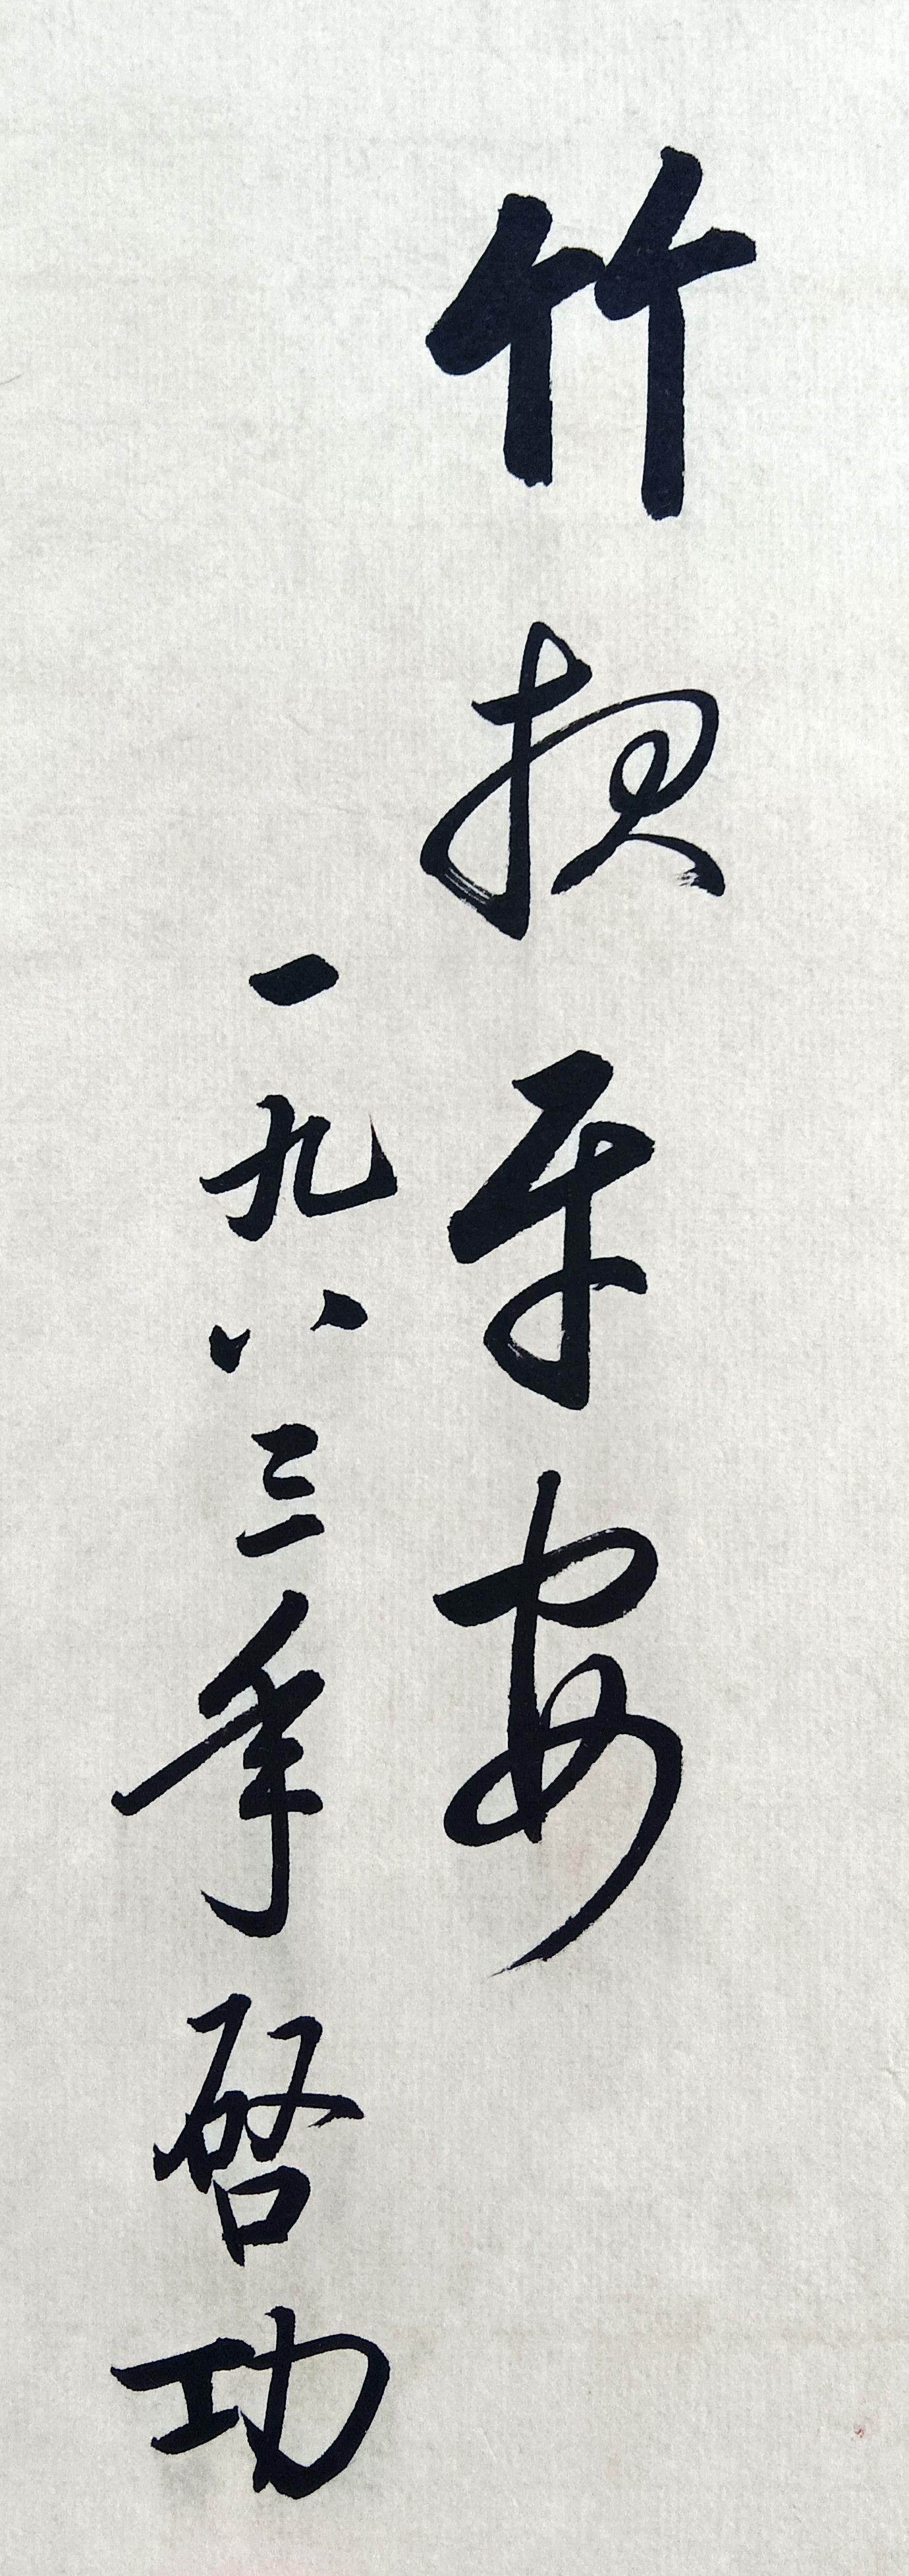 竹报平安
一九八三年启功